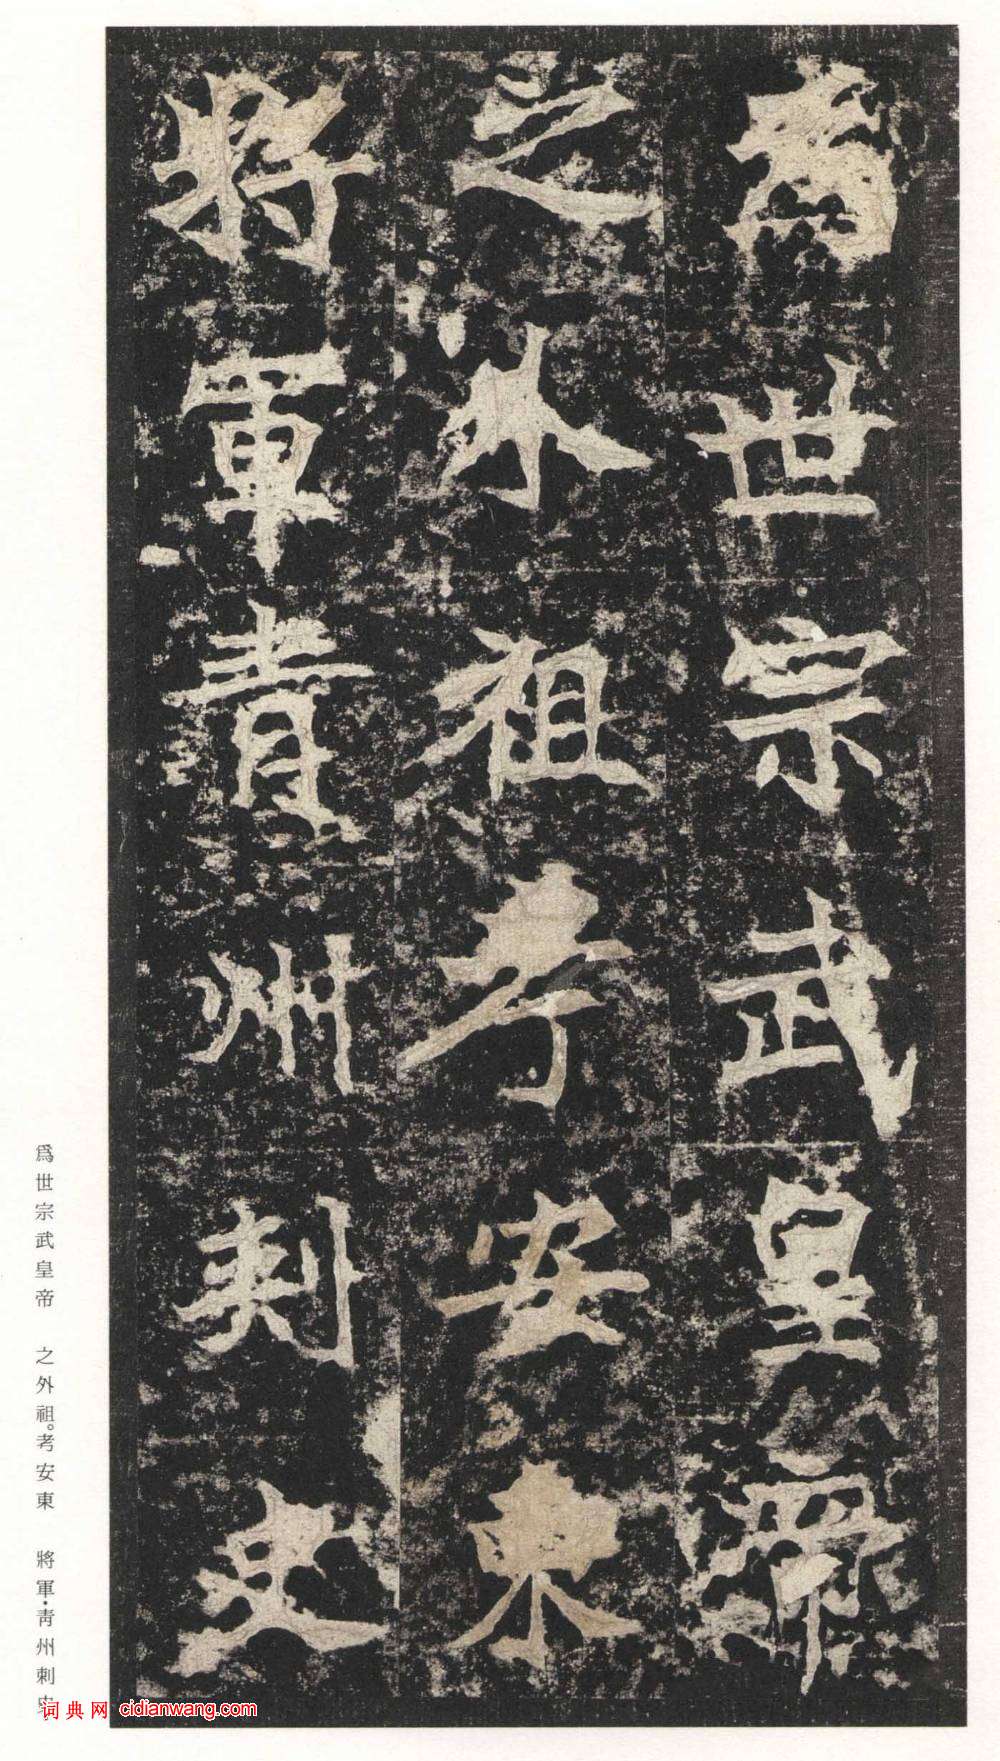 為世宗武皇帝
之外祖考安東
將軍青州刺史
爲世宗武皇帝 之外祖。考安東 將軍·靑州刺史
词典网 cidianwang.com